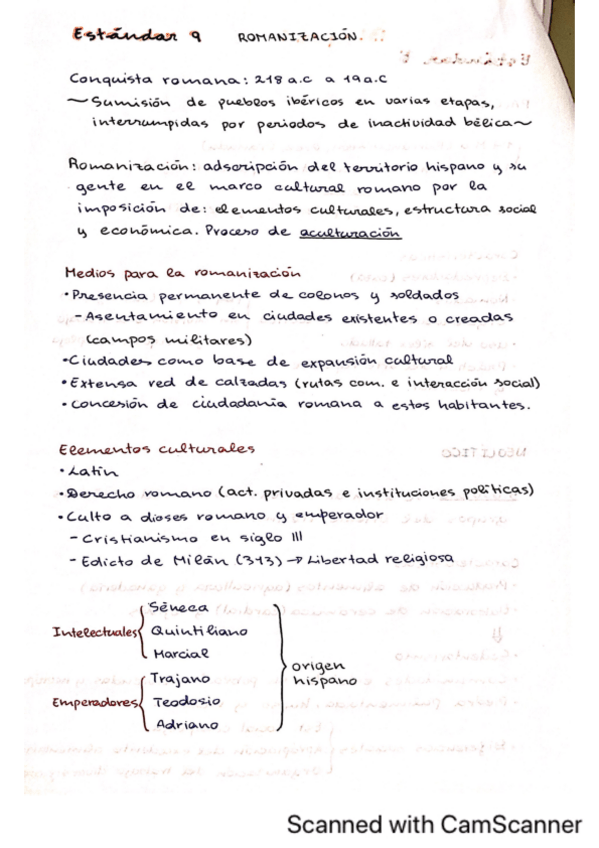 Estándar 9 ROMANIZACIÓN.
Conquista romana: 218 a.C a 19 a.C
~ Sumisión de pueblos ibéricos en varias etapas,
interrumpidas por periodos de inactividad bélica ~
Romanización: adscripción del territorio hispano y su
gente en el marco cultural romano por la
imposición de: elementos culturales, estructura social
y económica. Proceso de aculturación
Medios para la romanización
· Presencia permanente de colonos y soldados
- Asentamiento en ciudades existentes o creadas
(campos militares)
· Ciudades como base de expansión cultural
· Extensa red de calzadas (rutas com. e interacción social)
· Concesión de ciudadanía romana a estos habitantes.
Elementos culturales
· Latín
· Derecho romano (act. privadas e instituciones políticas)
· Culto a dioses romano y emperador
- Cristianismo en siglo III
- Edicto de Milán (313) → Libertad religiosa
Intelectuales
Séneca
Quintiliano
Marcial
Emperadores
Trajano
Teodosio
Adriano
origen
hispano
Scanned with CamScanner